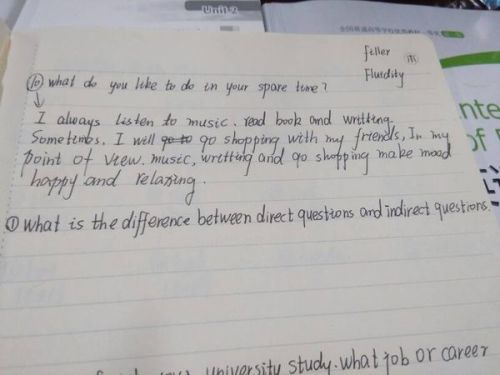 Unit 2
filler
Fluidity
⑩ what do you like to do in your spare time?
I always listen to music. read book and writting.
Sometimbs. I will go to go shopping with my friends, In my
point of view. music, writting and go shopping make mood
happy and relaxing.
① what is the difference between direct questions and indirect questions.
university study. what job or career